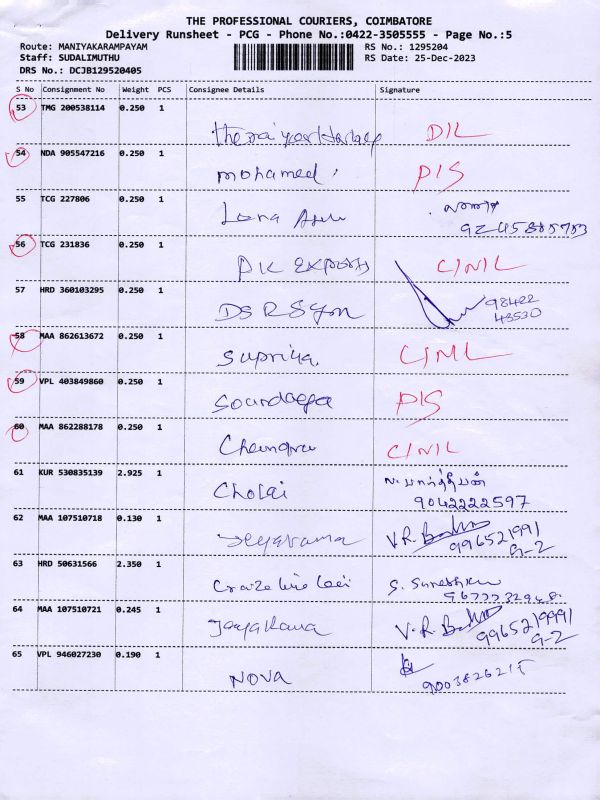 THE PROFESSIONAL COURIERS, COIMBATORE
Delivery Runsheet - PCG - Phone No.:0422-3505555 - Page No.:5
Route: MANIYAKARAMPAYAM RS No.: 1295204
Staff: SUDALIMUTHU RS Date: 25-Dec-2023
DRS No.: DCJB129520405
S No Consignment No Weight PCS Consignee Details Signature
53 TMG 200538114 0.250 1
DIL
54 NDA 905547216 0.250 1
mohamed PIS
55 TCG 227806 0.250 1
Lona
56 TCG 231836 0.250 1
PK EXPORTS CINIL
57 HRD 360103295 0.250 1
98422
43530
58 MAA 862613672 0.250 1
Supriya
59 VPL 403849860 0.250 1
PIS
60 MAA 862288178 0.250 1
CINIL
61 KUR 530835139 2.925 1
Cholai
9042222597
62 MAA 107510718 0.130 1
Jeyarama V.R.
996521991
G-2
63 HRD 50631566 2.350 1
S.
64 MAA 107510721 0.245 1
V.R.
9965219991
G-2
65 VPL 946027230 0.190 1
NOVA